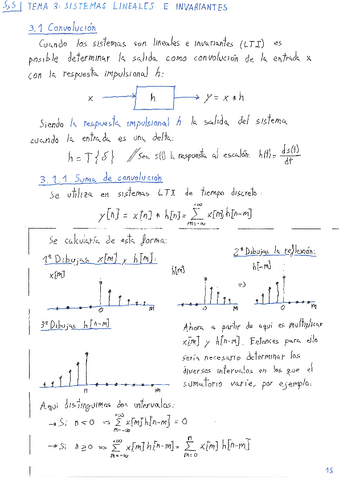 SyS | TEMA 3: SISTEMAS LINEALES E INVARIANTES
3.1 Convolución
Cuando los sistemas son lineales e invariantes (LTI) es
posible determinar la salida como convolución de la entrada x
con la respuesta impulsional h:
x → h → y = x * h
Siendo la respuesta impulsional h la salida del sistema
cuando la entrada es una delta:
h = T{δ} // Sea s(t) la respuesta al escalón: h(t) = ds(t)/dt
3.1.1 Suma de convolución
Se utiliza en sistemas LTI de tiempo discreto:
y[n] = x[n] * h[n] = Σ_{m=-∞}^{+∞} x[m] h[n-m]
Se calcularía de esta forma:
1º Dibujas x[m] y h[m]:
2º Dibujas la reflexión:
x[m]
h[m]
h[-m]
⇒
0 m
0
0 m
3º Dibujas h[n-m]
n m
Ahora a partir de aquí es multiplicar
x[m] y h[n-m]. Entonces para ello
sería necesario determinar los
diversos intervalos en los que el
sumatorio varíe, por ejemplo.
Aquí distinguimos dos intervalos:
→ Si n < 0 ⇒ Σ_{m=-∞}^{+∞} x[m] h[n-m] = 0
→ Si n ≥ 0 ⇒ Σ_{m=-∞}^{+∞} x[m] h[n-m] = Σ_{m=0}^{n} x[m] h[n-m]
15